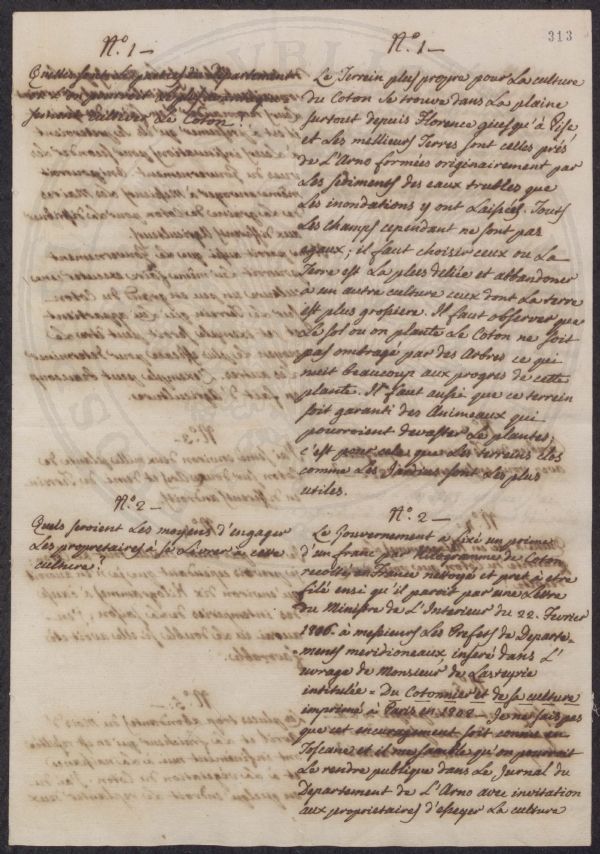 313
N.º 1 —
Quelles sont les parties du Département
où l'on pourroit
cultiver le Coton?
N.º 1 —
Le Terrein plus propre pour la culture
du Coton se trouve dans la plaine
surtout depuis Florence giusqu'à Pise,
et les mellieurs Terres sont celles près
de L'Arno formées originairement par
les sediments des eaux trubles que
les inondations y ont laissées. Touts
les champs cependant ne sont pas
egaux; il faut choisir ceux ou la
Terre est la plus deliée et abbandoner
à un autre culture ceux dont la terre
est plus grossiere. Il faut observer que
le sol ou on plante le Coton ne soit
pas ombragé par des Arbres ce qui
nuit beaucoup aux progres de cette
plante. Il faut aussie que ce terrein
soit garanti des Animeaux qui
pourroient devaster le plantes;
c'est pour cela que les terreins clos
comme les Jardins sont les plus
utiles.
N.º 2 —
Quels seroient les moyens d'engager
les propretaires à se livrer à cette
culture?
N.º 2 —
Le Gouvernement a fixé un prime
d'un franc par Killogramme de Coton
recolté en France netoyé et pret à etre
filé ensi qu'il paroit par une Lettre
du Ministre de L'Interieur du 22. Fevrier
1806. à messieurs les Prefets de Departe-
ments meridioneaux, inseré dans L'
uvrage de Monsieur de Lasteyrie
intitulée = Du Cotonnier et de sa culture
imprimé à Paris en 1808 — Je ne sais pas
que cet encuragement soit connu en
Toscane et il me samble qu'on pourrait
le rendre publique dans le Jurnal du
Departement de L'Arno avec invitation
aux proprietaires d'esseyer la culture